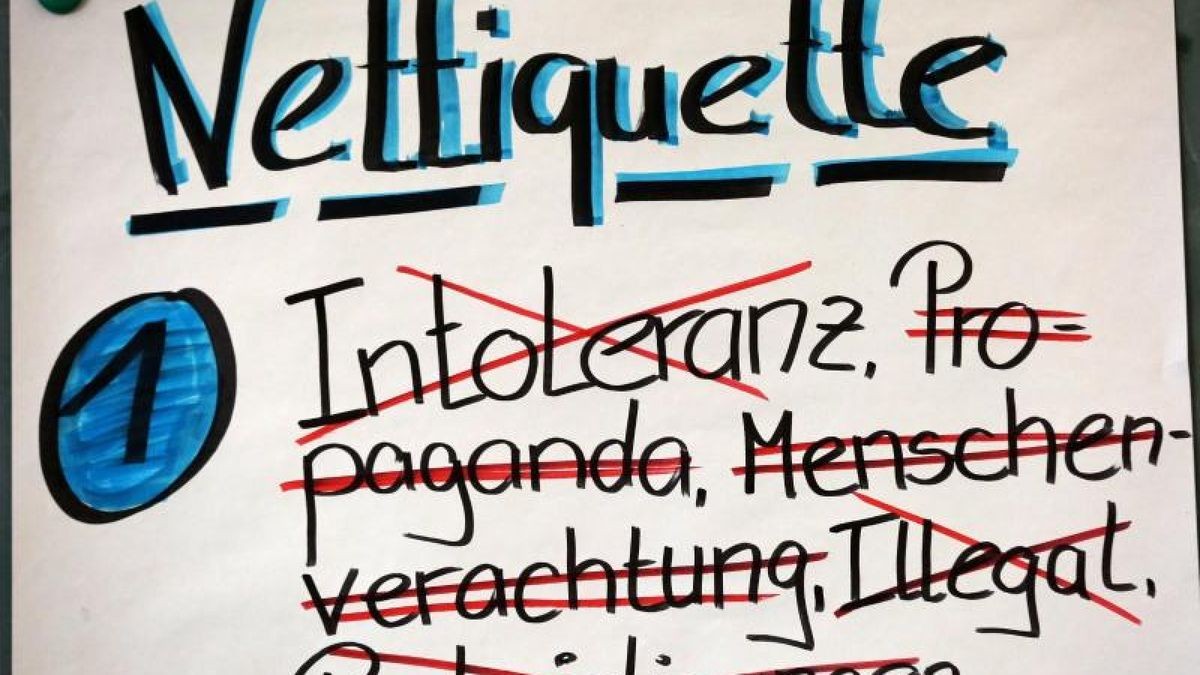 Nettiquette
1 Intoleranz, Pro=
paganda, Menschen-
verachtung, Illegal,